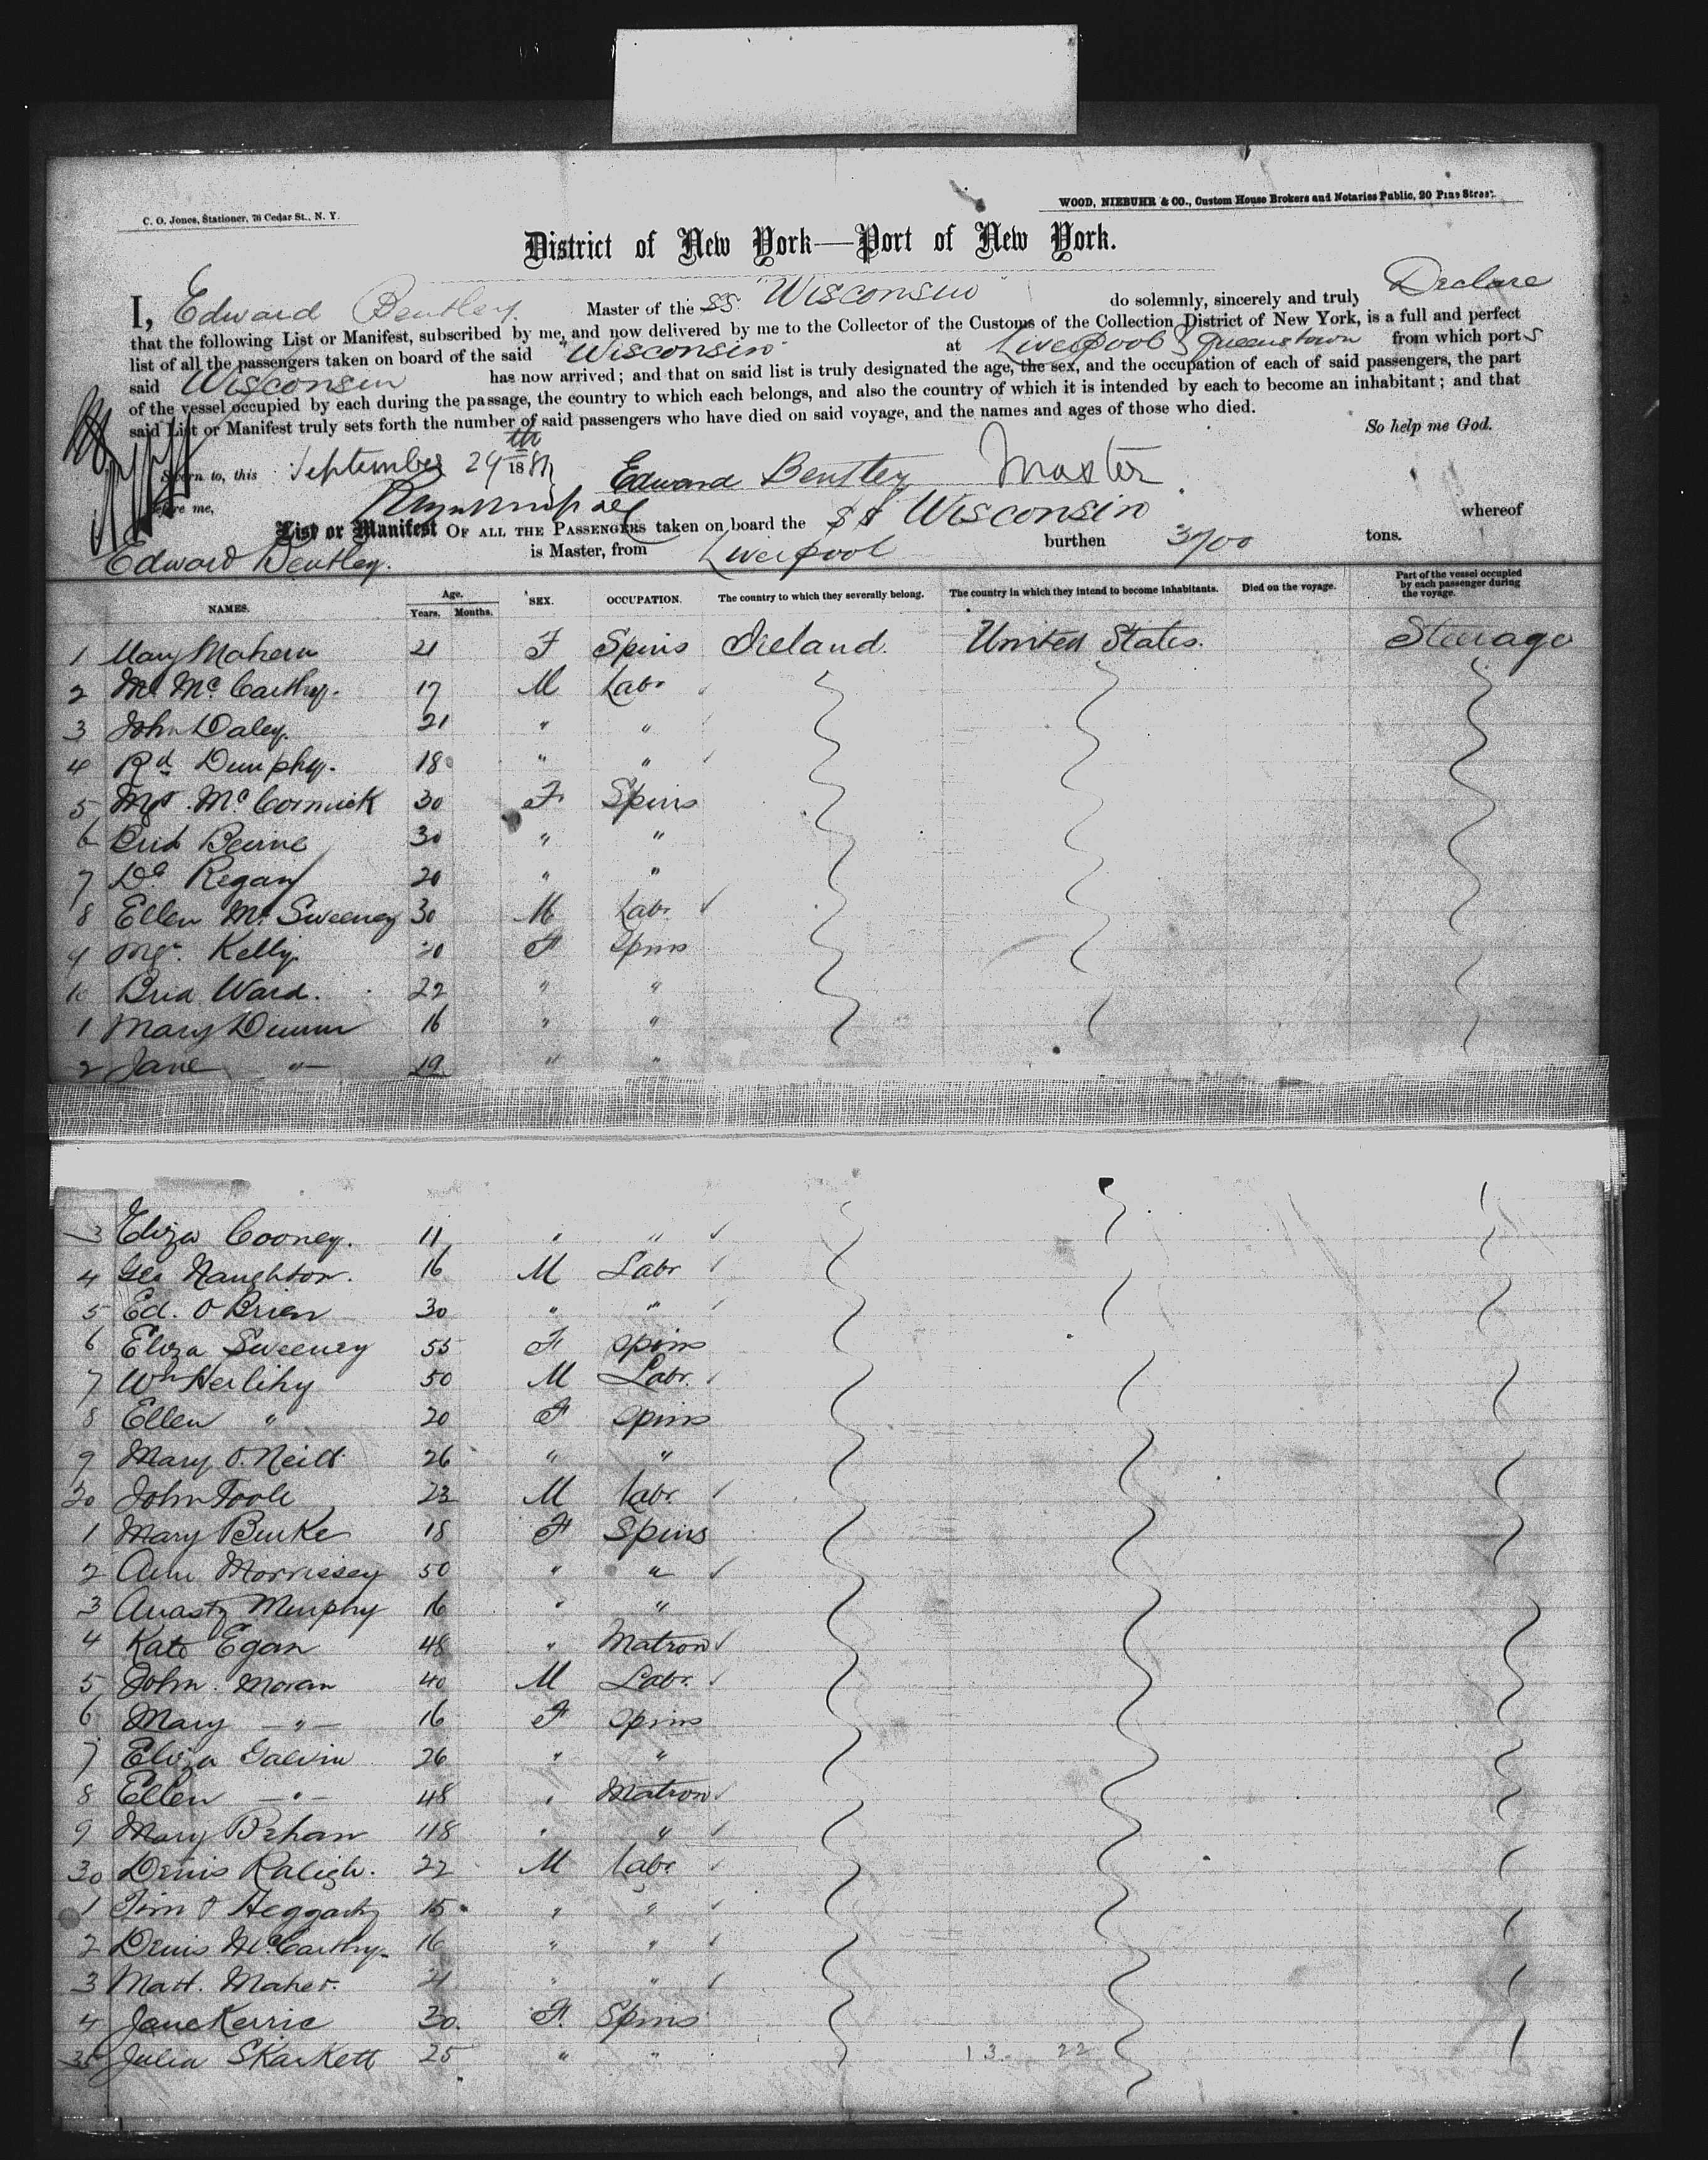 C. O. Jones, Stationer, 76 Cedar St., N. Y.
WOOD, NIEBUHR & CO., Custom House Brokers and Notaries Public, 20 Pine Street.
District of New York—Port of New York.
I, Edward Bentley Master of the SS. "Wisconsin" do solemnly, sincerely and truly Declare
that the following List or Manifest, subscribed by me, and now delivered by me to the Collector of the Customs of the Collection District of New York, is a full and perfect
list of all the passengers taken on board of the said "Wisconsin" at Liverpool & Queenstown from which ports
said Wisconsin has now arrived; and that on said list is truly designated the age, the sex, and the occupation of each of said passengers, the part
of the vessel occupied by each during the passage, the country to which each belongs, and also the country of which it is intended by each to become an inhabitant; and that
said List or Manifest truly sets forth the number of said passengers who have died on said voyage, and the names and ages of those who died.
So help me God.
Sworn to, this September 24th 188
Edward Bentley Master
before me,
List or Manifest OF ALL THE PASSENGERS taken on board the SS Wisconsin whereof
Edward Bentley. is Master, from Liverpool burthen 3700 tons.
NAMES. Age. Years. Months. SEX. OCCUPATION. The country to which they severally belong. The country in which they intend to become inhabitants. Died on the voyage. Part of the vessel occupied by each passenger during the voyage.
1 Mary Mahern 21 F Spins Ireland. United States. Steerage
2 Mc Carthy. 17 M Labr
3 John Daley. 21 " "
4 Rd Dunphy. 18 " "
5 Mgt. McCormick 30 F Spins
6 Brid Beirne 30 " "
7 Do Regan 20 " "
8 Ellen McSweeney 30 M Labr
9 Mgt. Kelly. 20 F Spins
10 Brid Ward. 22 " "
1 Mary Dunn 16 " "
2 Jane —"— 19 " "
3 Eliza Cooney. 11 " "
4 Geo Naughton. 16 M Labr
5 Ed. O Brien 30 " "
6 Eliza Sweeney 55 F Spins
7 Wm Herlihy 50 M Labr.
8 Ellen " 20 F Spins
9 Mary O.Neill 26 " "
20 John Toole 23 M Labr.
1 Mary Burke 18 F Spins
2 Ann Morrissey 50 " "
3 Anasty Murphy 16 " "
4 Kate Egan 48 " Matron
5 John Moran 40 M Labr.
6 Mary —"— 16 F Spins
7 Eliza Galvin 26 " "
8 Ellen —"— 48 " Matron
9 Mary Behan 48 " "
30 Denis Raligh. 22 M Labr
1 Tim O Heggarty 15 " "
2 Denis McCarthy. 16 " "
3 Matt. Maher. 21 " "
4 Jane Kerric 30. F. Spins
35 Julia Skarkett 25 " "
13. 22